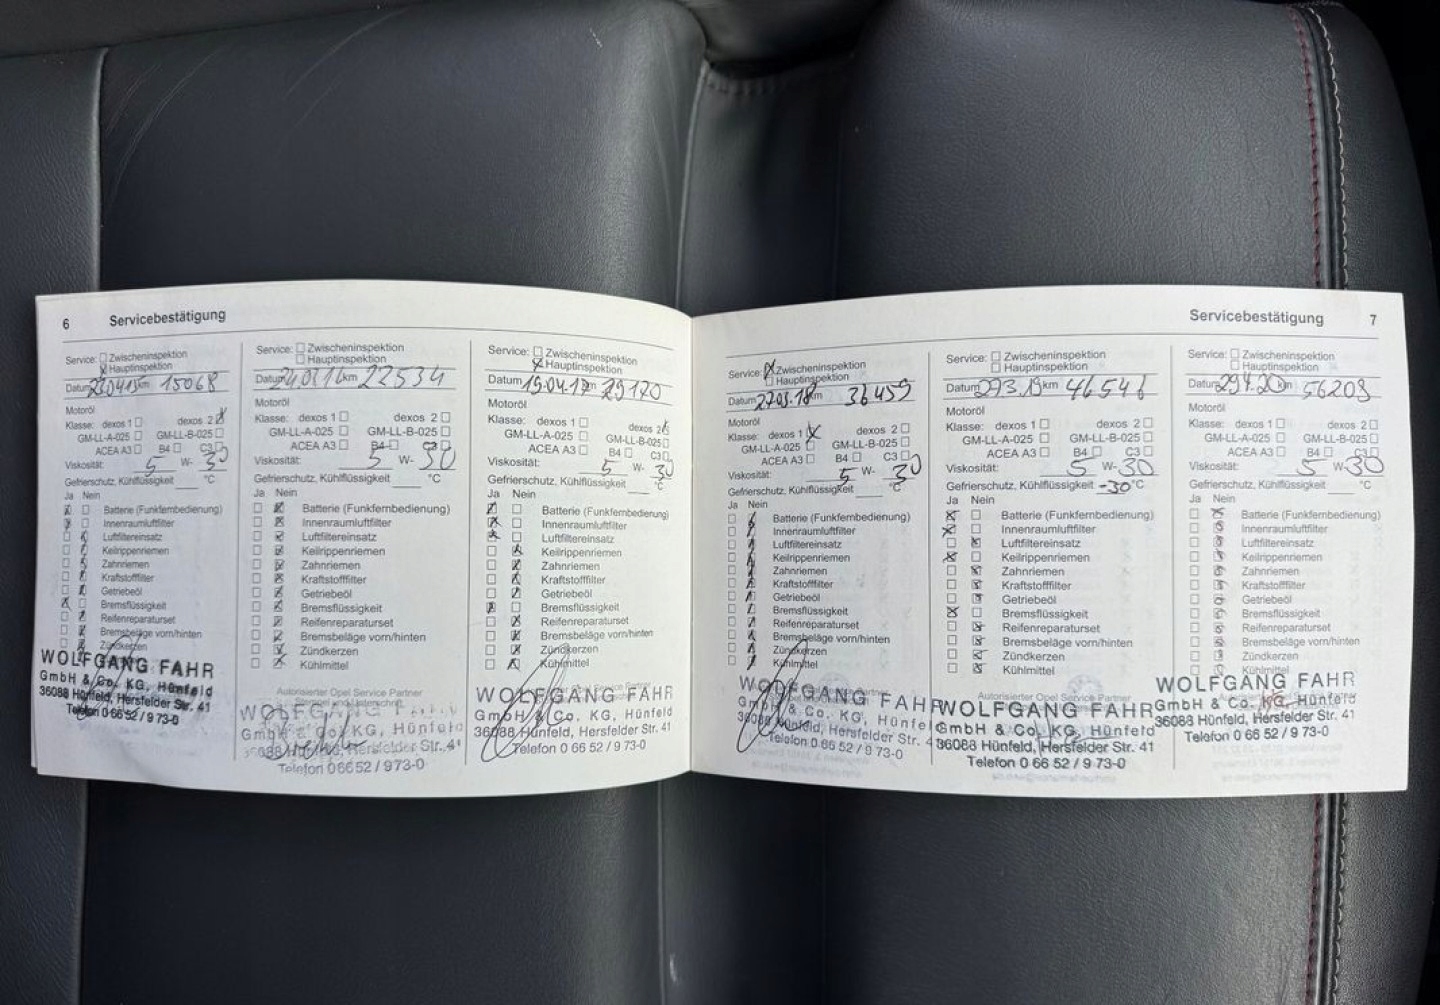 6 Servicebestätigung
Service: Zwischeninspektion
Hauptinspektion
Datum km 15068
Motoröl
Klasse: dexos 1 dexos 2
GM-LL-A-025 GM-LL-B-025
ACEA A3 B4 C3
Viskosität: 5 W- 30
Gefrierschutz, Kühlflüssigkeit °C
Ja Nein
Batterie (Funkfernbedienung)
Innenraumluftfilter
Luftfiltereinsatz
Keilrippenriemen
Zahnriemen
Kraftstofffilter
Getriebeöl
Bremsflüssigkeit
Reifenreparaturset
Bremsbeläge vorn/hinten
Zündkerzen
WOLFGANG FAHR
GmbH & Co. KG, Hünfeld
36088 Hünfeld, Hersfelder Str. 41
Telefon 0 66 52 / 9 73-0
Service: Zwischeninspektion
Hauptinspektion
Datum km 22534
Motoröl
Klasse: dexos 1 dexos 2
GM-LL-A-025 GM-LL-B-025
ACEA A3 B4 C3
Viskosität: 5 W- 30
Gefrierschutz, Kühlflüssigkeit °C
Ja Nein
Batterie (Funkfernbedienung)
Innenraumluftfilter
Luftfiltereinsatz
Keilrippenriemen
Zahnriemen
Kraftstofffilter
Getriebeöl
Bremsflüssigkeit
Reifenreparaturset
Bremsbeläge vorn/hinten
Zündkerzen
Kühlmittel
Autorisierter Opel Service Partner
WOLFGANG
GmbH & Co. KG, Hünfeld
36088 Hünfeld, Hersfelder Str. 41
Telefon 0 66 52 / 9 73-0
Service: Zwischeninspektion
Hauptinspektion
Datum 19.04.17 km 29170
Motoröl
Klasse: dexos 1 dexos 2
GM-LL-A-025 GM-LL-B-025
ACEA A3 B4 C3
Viskosität: 5 W- 30
Gefrierschutz, Kühlflüssigkeit °C
Ja Nein
Batterie (Funkfernbedienung)
Innenraumluftfilter
Luftfiltereinsatz
Keilrippenriemen
Zahnriemen
Kraftstofffilter
Getriebeöl
Bremsflüssigkeit
Reifenreparaturset
Bremsbeläge vorn/hinten
Zündkerzen
Kühlmittel
WOLFGANG FAHR
GmbH & Co. KG, Hünfeld
36088 Hünfeld, Hersfelder Str. 41
Telefon 0 66 52 / 9 73-0
Servicebestätigung 7
Service: Zwischeninspektion
Hauptinspektion
Datum 27.03.18 km 36459
Motoröl
Klasse: dexos 1 dexos 2
GM-LL-A-025 GM-LL-B-025
ACEA A3 B4 C3
Viskosität: 5 W- 30
Gefrierschutz, Kühlflüssigkeit °C
Ja Nein
Batterie (Funkfernbedienung)
Innenraumluftfilter
Luftfiltereinsatz
Keilrippenriemen
Zahnriemen
Kraftstofffilter
Getriebeöl
Bremsflüssigkeit
Reifenreparaturset
Bremsbeläge vorn/hinten
Zündkerzen
Kühlmittel
WOLFGANG FAHR
GmbH & Co. KG, Hünfeld
36088 Hünfeld, Hersfelder Str. 41
Telefon 0 66 52 / 9 73-0
Service: Zwischeninspektion
Hauptinspektion
Datum 27.3.19 km 46546
Motoröl
Klasse: dexos 1 dexos 2
GM-LL-A-025 GM-LL-B-025
ACEA A3 B4 C3
Viskosität: 5 W- 30
Gefrierschutz, Kühlflüssigkeit -30 °C
Ja Nein
Batterie (Funkfernbedienung)
Innenraumluftfilter
Luftfiltereinsatz
Keilrippenriemen
Zahnriemen
Kraftstofffilter
Getriebeöl
Bremsflüssigkeit
Reifenreparaturset
Bremsbeläge vorn/hinten
Zündkerzen
Kühlmittel
Autorisierter Opel Service Partner
WOLFGANG FAHR
GmbH & Co. KG, Hünfeld
36088 Hünfeld, Hersfelder Str. 41
Telefon 0 66 52 / 9 73-0
Service: Zwischeninspektion
Hauptinspektion
Datum km 56203
Motoröl
Klasse: dexos 1 dexos 2
GM-LL-A-025 GM-LL-B-025
ACEA A3 B4 C3
Viskosität: 5 W- 30
Gefrierschutz, Kühlflüssigkeit °C
Ja Nein
Batterie (Funkfernbedienung)
Innenraumluftfilter
Luftfiltereinsatz
Keilrippenriemen
Zahnriemen
Kraftstofffilter
Getriebeöl
Bremsflüssigkeit
Reifenreparaturset
Bremsbeläge vorn/hinten
Zündkerzen
Kühlmittel
WOLFGANG FAHR
GmbH & Co. KG, Hünfeld
36088 Hünfeld, Hersfelder Str. 41
Telefon 0 66 52 / 9 73-0